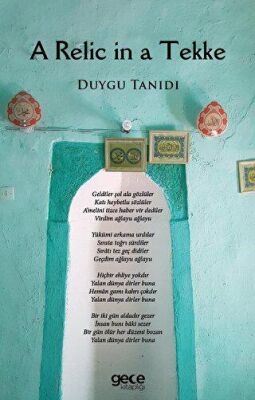 A Relic in a Tekke
DUYGU TANIDI
Geldiler şol ala gözlüler
Katı heybetlu sözlüler
Amelini tizce haber vir dediler
Virdim ağlayu ağlayu
Yükümi arkama urdılar
Sırata toğrı sürdiler
Sıratı tez geç didiler
Geçdim ağlayu ağlayu
Hiçbir ehliye yokdır
Yalan dünya dirler buna
Hemân gamı kahrı çokdır
Yalan dünya dirler buna
Bir iki gün aldadır gezer
İnsan bunı bâki sezer
Bir gün ölür her düzeni bozan
Yalan dünya dirler buna
gece
kitaplığı